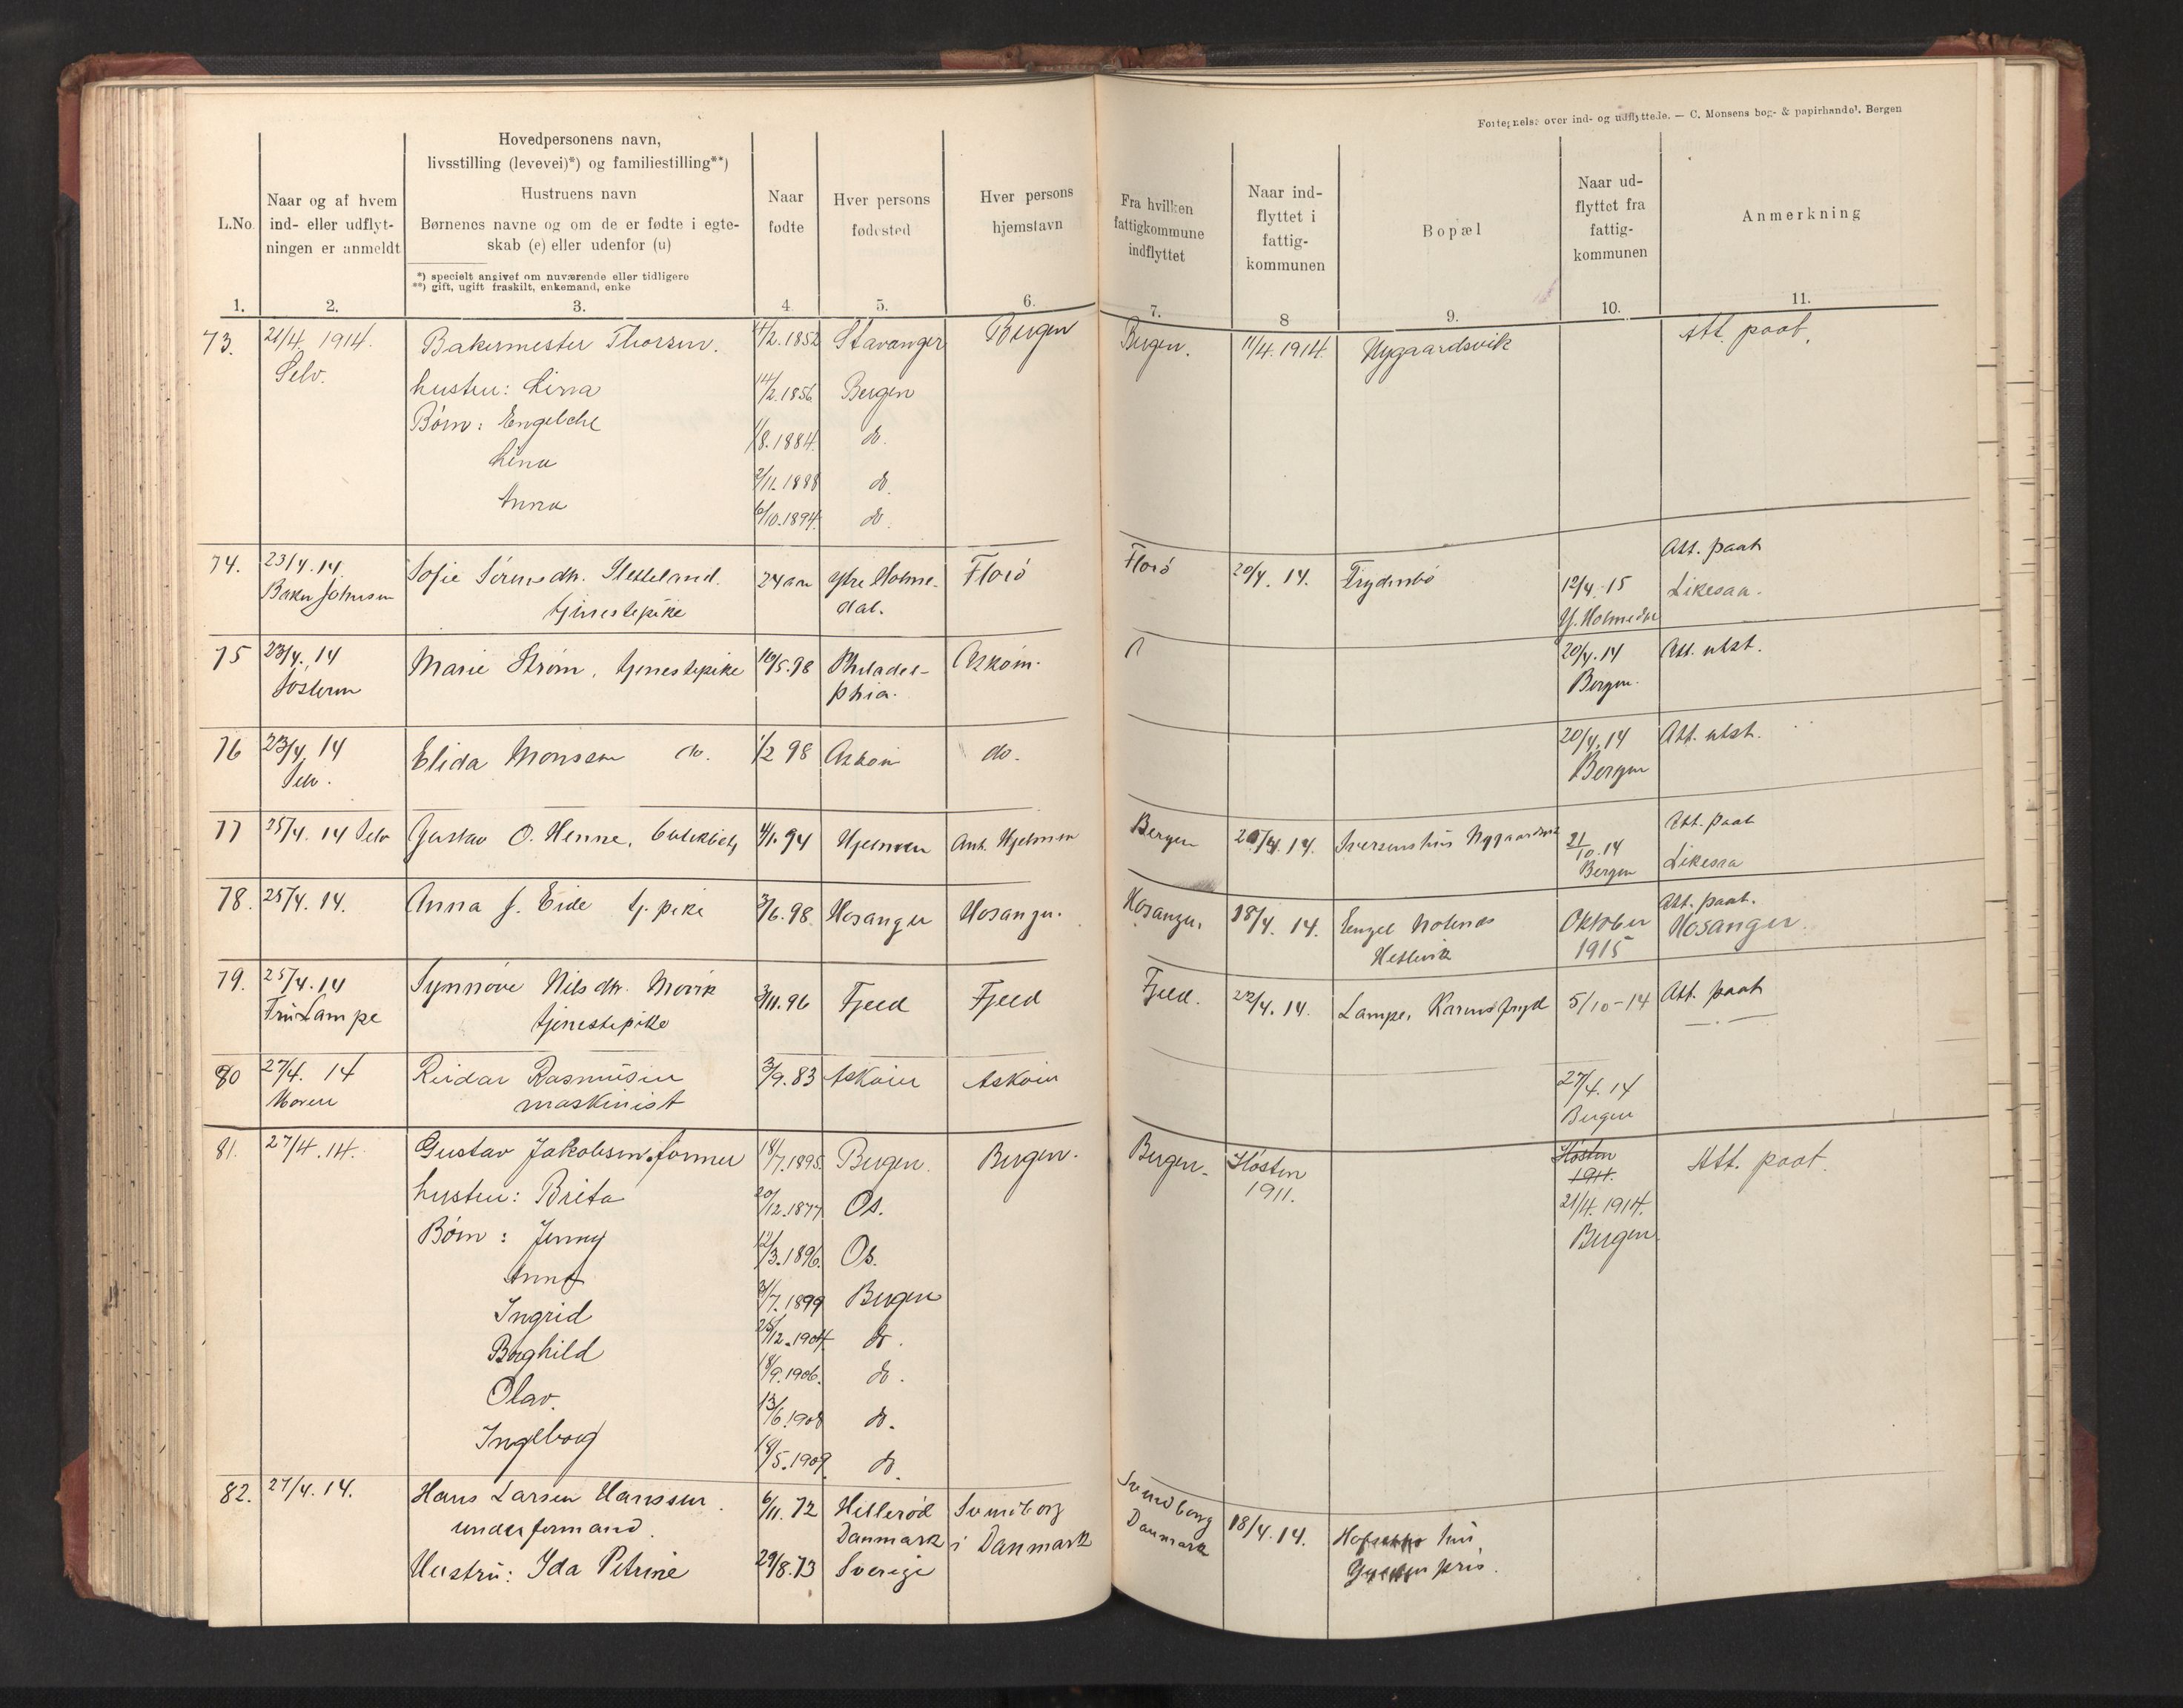 Fortegnelse over ind- og udflyttede. — C. Monsens bog- & papirhandel. Bergen
L.No.
Naar og af hvem
ind- eller udflyt-
ningen er anmeldt
Hovedpersonens navn,
livsstilling (levevei)*) og familiestilling**)
Hustruens navn
Børnenes navne og om de er fødte i egte-
skab (e) eller udenfor (u)
*) specielt angivet om nuværende eller tidligere
**) gift, ugift fraskilt, enkemand, enke
Naar
fødte
Hver persons
fødested
Hver persons
hjemstavn
Fra hvilken
fattigkommune
indflyttet
Naar ind-
flyttet i
fattig-
kommunen
Bopæl
Naar ud-
flyttet fra
fattig-
kommunen
Anmerkning
1. 2. 3. 4. 5. 6. 7. 8 9. 10. 11.
73. 21/4. 1914. Bakermester Thorsen. 11/2.1852 Stavanger Bergen Bergen. 11/4.1914. Nygaardsvik Att. paat.
Selv.
hustru: Lina 14/2.1856 Bergen
Børn: Engelche 1/8.1884. do.
Lina 2/11.1888 do.
Anna 6/10.1894. do.
74. 23/4.14. Sofie Sørensdtr. 24 aar Ytre Holme- Florö Florö 20/4. 14. Frydenbö 12/4.-15 Att. paat
Baker Johnsen tjenestepike dal. Y. Holmedal Likesaa.
75 23/4. 14 Marie Strøm, tjenestepike 16/5.98 Philadel- Askøin. 20/4.14 Att. utst.
phia. Bergen.
76 23/4. 14 Elida Monssen do. 1/2 98 Askøin do. 20/4.14 Att. utst.
Selv. Bergen
77 25/4. 14 Selv Gustav O. Henne, 4/1.94 Hjelmen Anh. Hjelmen Bergen 20/4.14. Iversens hus Nygaardsvik 21/10.14 Att. paat
Bergen Likesaa
78. 25/4. 14. Anna J. Eide tj. pike 3/6.98 Hosanger Hosanger. Hosanger. 18/4. 14. Engel Holmaas Oktober Att. paat.
Hetlevik 1915 Hosanger.
79. 25/4.14 Synnöve Nilsdtr. Mövik 3/11.96 Fjeld Fjeld Fjeld. 22/4.14. Lampe, 5/10-14 Att. paat
Fru Lampe tjenestepike
80 27/4. 14 Reidar Rasmussen 3/9.83 Askøien Askøien 27/4.14
maskinist Bergen
81. 27/4.14. Gustav Jakobsen, former 18/7.1895. Bergen. Bergen. Bergen. Høsten Høsten Att. paat.
1911. 1911.
hustru: Brita 20/12.1877 Os. 21/4.1914.
Børn: Jenny 12/3.1896. Os. Bergen.
Anna 3/7.1899 Bergen
Ingrid 25/12.1904 do.
Borghild 18/9.1906. do.
Olav. 13/6.1908 do.
Ingeborg 18/5.1909. do.
82. 27/4.14. Hans Larsen Hanssen. 6/11.72 Hillerød Svendborg Svendborg 18/4.14. hus,
underformand. Danmark i Danmark Danmark Gyldenpris.
Hustru: Ida Petrine 29/8.73 Sverige